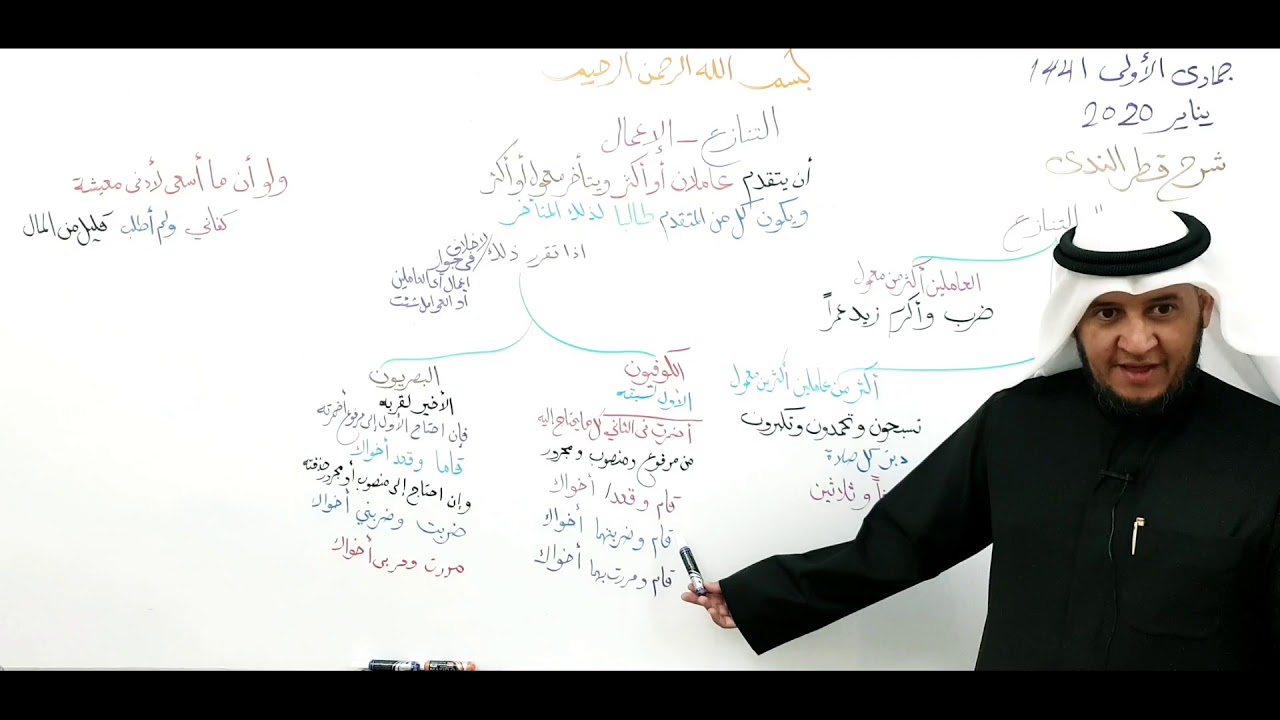 بسم الله الرحمن الرحيم
جمادى الأولى ١٤٤١
يناير 2020
شرح قطر الندى
التنازع
العاملين أكثر من معمول
ضرب وأكرم زيد عمراً
أكثر من عاملين أكثر من معمول
تسبحون وتحمدون وتكبرون
دبر كل صلاة
وثلاثين
التنازع - الإعمال
أن يتقدم عاملان أو أكثر ويتأخر معمول أو أكثر
ويكون كل من المتقدم طالبا لذلك المتأخر
اذا تقرر ذلك / لا خلاف
في جواز
إعمال أي العاملين
أو العوامل شئت
الكوفيون
الأول لسبقه
أضمرت في الثاني كل ما يحتاج إليه
من مرفوع ومنصوب ومجرور
قام وقعدا أخواك
قام وضربتهما أخواك
قام ومررت بهما أخواك
البصريون
الأخير لقربه
فإن احتاج الأول إلى مرفوع أضمرته
قاما وقعد أخواك
وإن احتاج إلى منصوب أو مجرور حذفته
ضربت وضربني أخواك
مررت ومر بي أخواك
ولو أن ما أسعى لأدنى معيشة
كفاني ولم أطلب قليل من المال